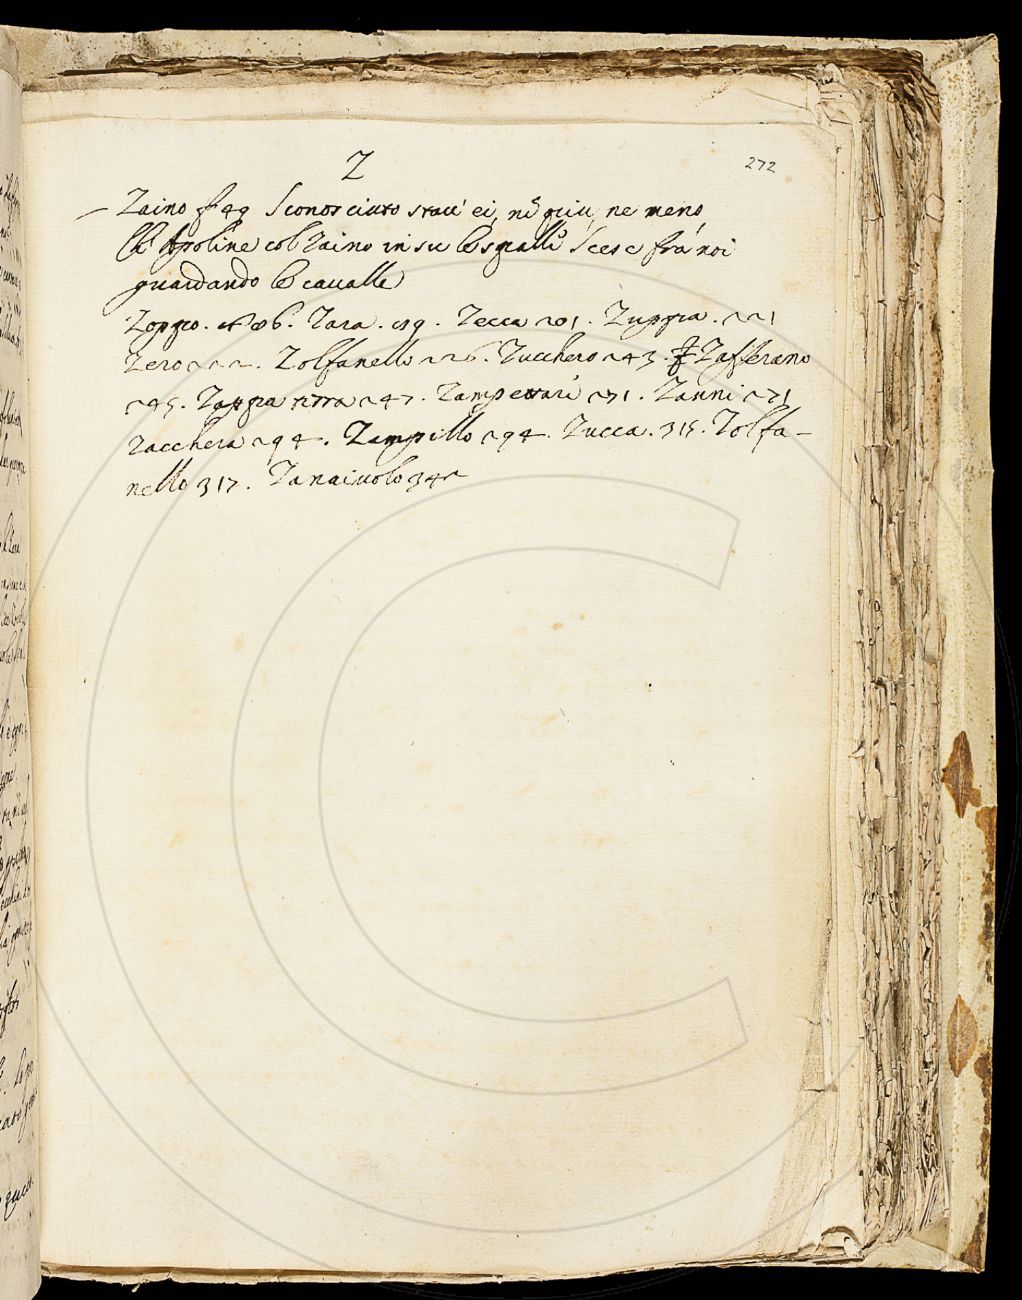 272
Z
Zaino f 49 Sconosciuto stavv' ei, nè più, ne meno
Ch' Apoline col Zaino in su le spalle Scese frà noi
guardando le cavalle
Zoppo. Zara. 159. Zecca 201. Zuppa. 221
Zero 222. Zolfanello 226. Zucchero 243. Zafferano
245. Zappa terra 247. Zampettare 271. Zanni 271
Zacchera 294. Zampillo 294. Zucca. 315. Zolfa-
nello 317. Zanaiuolo 342